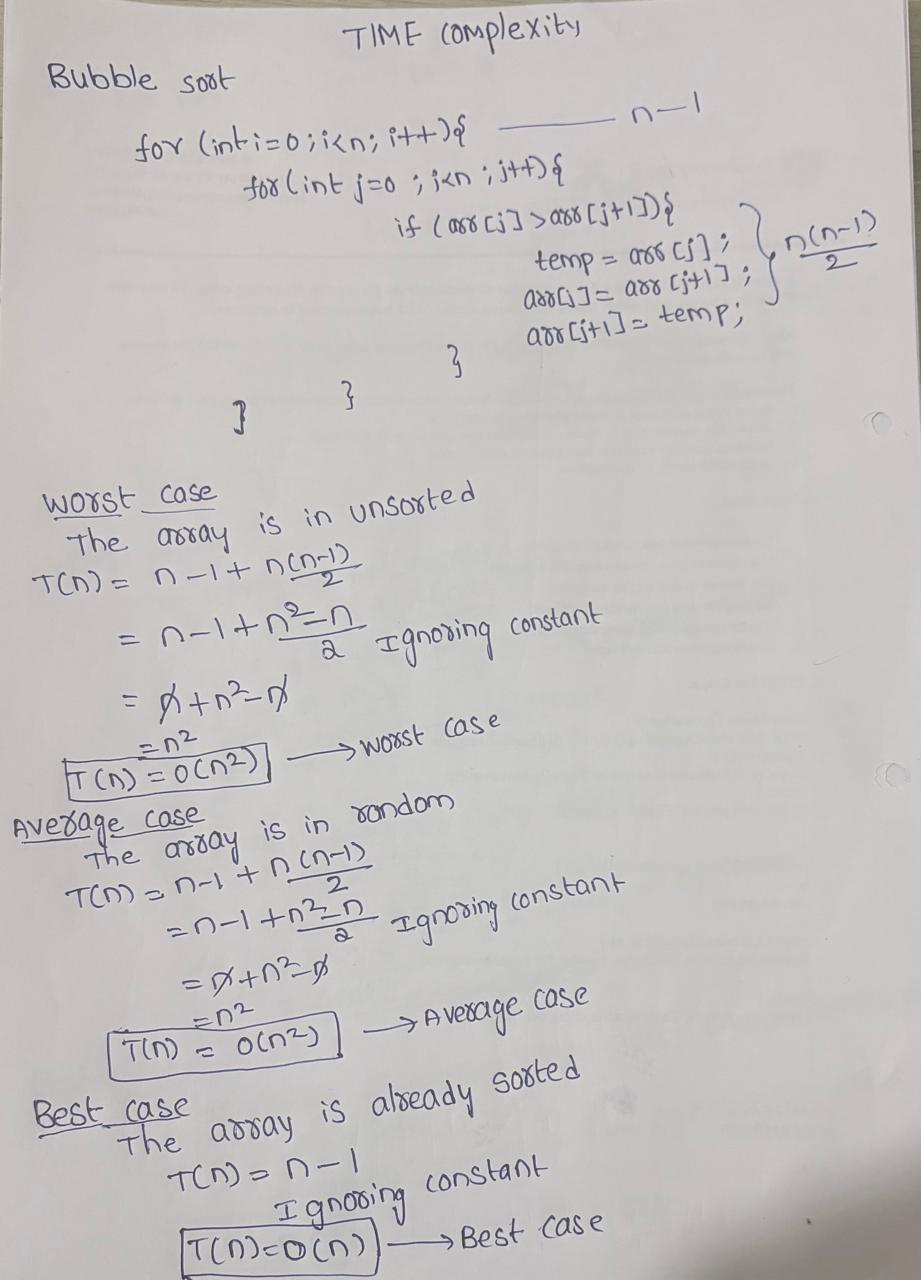 TIME complexity
Bubble sort
for (int i=0; i<n; i++){ —— n-1
for(int j=0 ; j<n ; j++){
if (arr[j] > arr[j+1]){
temp = arr[j];
arr[j] = arr[j+1];
arr[j+1] = temp; } n(n-1)/2
}
}
}
Worst case
The array is in unsorted
T(n) = n-1+ n(n-1)/2
= n-1+n²-n/2 Ignoring constant
= n+n²-n
=n²
T(n) = O(n²) → worst case
Average case
The array is in random
T(n) = n-1 + n(n-1)/2
=n-1 +n²-n/2 Ignoring constant
= n+n²-n
=n²
T(n) = O(n²) → Average case
Best case
The array is already sorted
T(n) = n-1
Ignoring constant
T(n)=O(n) → Best case